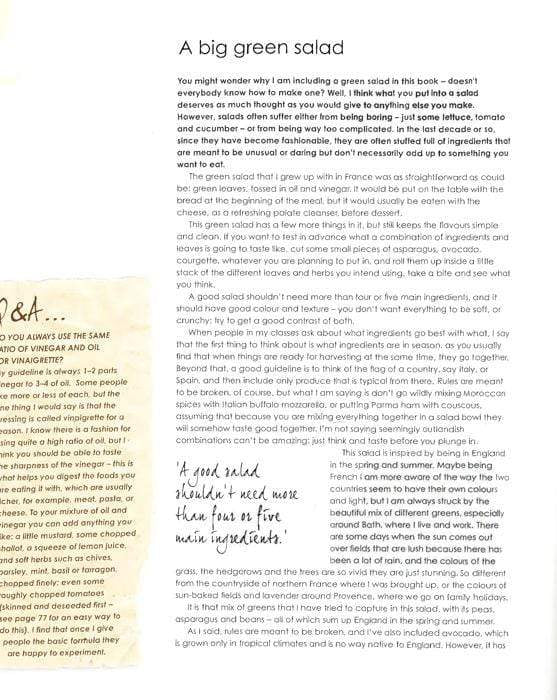 A big green salad
You might wonder why I am including a green salad in this book – doesn't
everybody know how to make one? Well, I think what you put into a salad
deserves as much thought as you would give to anything else you make.
However, salads often suffer either from being boring – just some lettuce, tomato
and cucumber – or from being way too complicated. In the last decade or so,
since they have become fashionable, they are often stuffed full of ingredients that
are meant to be unusual or daring but don't necessarily add up to something you
want to eat.
The green salad that I grew up with in France was as straightforward as could
be: green leaves, tossed in oil and vinegar. It would be put on the table with the
bread at the beginning of the meal, but it would usually be eaten with the
cheese, as a refreshing palate cleanser, before dessert.
This green salad has a few more things in it, but still keeps the flavours simple
and clean. If you want to test in advance what a combination of ingredients and
leaves is going to taste like, cut some small pieces of asparagus, avocado,
courgette, whatever you are planning to put in, and roll them up inside a little
stack of the different leaves and herbs you intend using, take a bite and see what
you think.
A good salad shouldn't need more than four or five main ingredients, and it
should have good colour and texture – you don't want everything to be soft, or
crunchy: try to get a good contrast of both.
When people in my classes ask about what ingredients go best with what, I say
that the first thing to think about is what ingredients are in season, as you usually
find that when things are ready for harvesting at the same time, they go together.
Beyond that, a good guideline is to think of the flag of a country, say Italy, or
Spain, and then include only produce that is typical from there. Rules are meant
to be broken, of course, but what I am saying is don't go wildly mixing Moroccan
spices with Italian buffalo mozzarella, or putting Parma ham with couscous,
assuming that because you are mixing everything together in a salad bowl they
will somehow taste good together. I'm not saying seemingly outlandish
combinations can't be amazing; just think and taste before you plunge in.
This salad is inspired by being in England
in the spring and summer. Maybe being
French I am more aware of the way two
countries seem to have their own colours
and light, but I am always struck by the
beautiful mix of different greens, especially
around Bath, where I live and work. There
are some days when the sun comes out
over fields that are lush because there has
been a lot of rain, and the colours of the
grass, the hedgerows and the trees are so vivid they are just stunning. So different
from the countryside of northern France where I was brought up, or the colours of
sun-baked fields and lavender around Provence, where we go on family holidays.
It is that mix of greens that I have tried to capture in this salad, with its peas,
asparagus and beans – all of which sum up England in the spring and summer.
As I said, rules are meant to be broken, and I've also included avocado, which
is grown only in tropical climates and is no way native to England. However, it has
'A good salad
shouldn't need more
than four or five
main ingredients.'
Q&A...
O YOU ALWAYS USE THE SAME
ATIO OF VINEGAR AND OIL
OR VINAIGRETTE?
y guideline is always 1–2 parts
inegar to 3–4 of oil. Some people
ke more or less of each, but the
ne thing I would say is that the
ressing is called vinaigrette for a
eason. I know there is a fashion for
sing quite a high ratio of oil, but I
hink you should be able to taste
he sharpness of the vinegar – this is
what helps you digest the foods you
are eating it with, which are usually
icher, for example, meat, pasta, or
cheese. To your mixture of oil and
vinegar you can add anything you
like: a little mustard, some chopped
shallot, a squeeze of lemon juice,
and soft herbs such as chives,
parsley, mint, basil or tarragon,
chopped finely; even some
roughly chopped tomatoes
(skinned and deseeded first –
see page 77 for an easy way to
do this). I find that once I give
people the basic formula they
are happy to experiment.